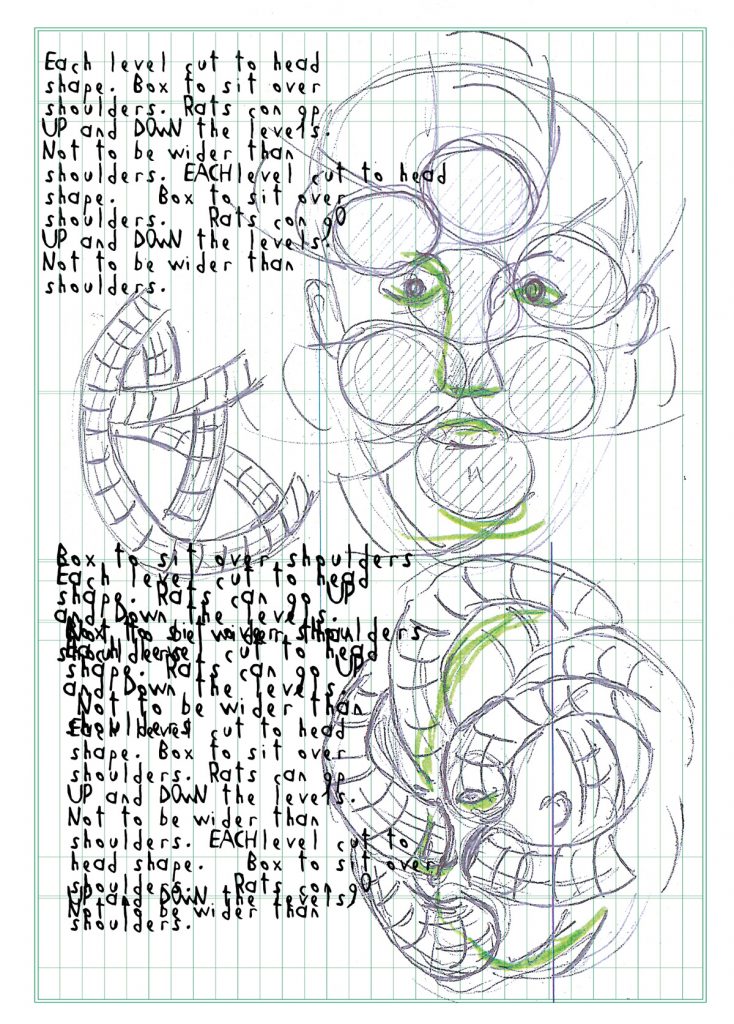 Each level cut to head
shape. Box to sit over
shoulders. Rats can go
UP and DOWN the levels.
Not to be wider than
shoulders. EACH level cut to head
shape. Box to sit over
shoulders. Rats can gO
UP and DOWN the levels.
Not to be wider than
shoulders.
Box to sit over shoulders
Each level cut to head
shape. Rats can go UP
and Down the levels.
Box to sit over shoulders
cut to head
shape. Rats can go UP
and Down the levels.
Not to be wider than
Each level cut to head
shape. Box to sit over
shoulders. Rats can go
UP and DOWN the levels.
Not to be wider than
shoulders. EACH level cut to
head shape. Box to sit over
shoulders. Rats can gO
UP and DOWN the levels.
Not to be wider than
shoulders.